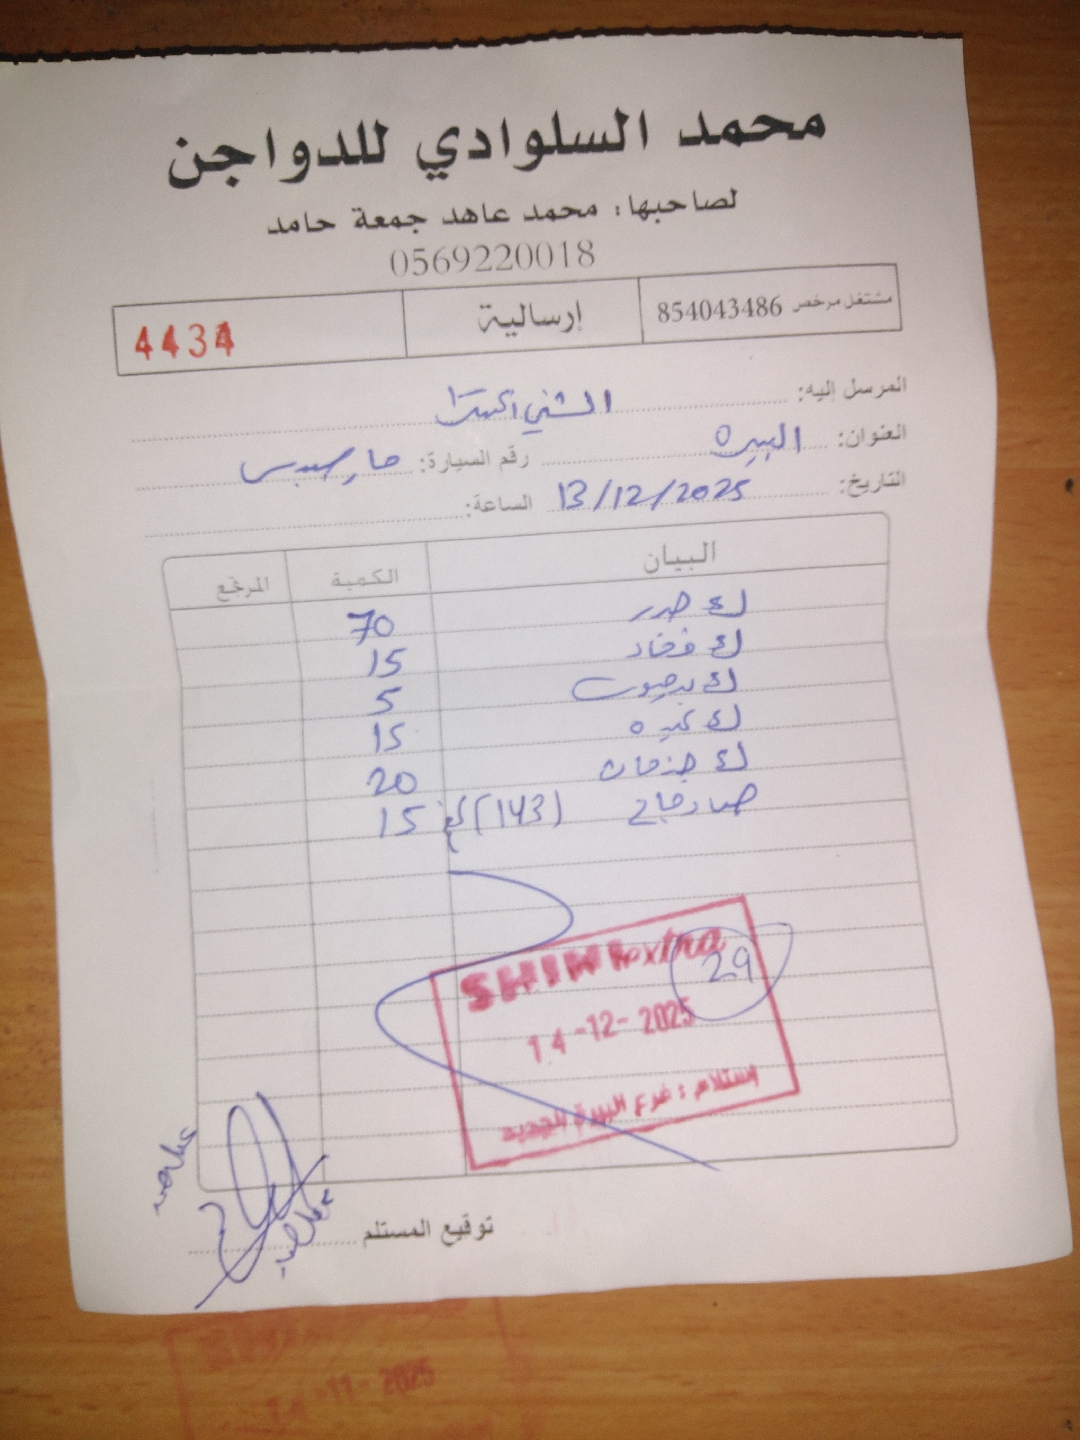 محمد السلوادي للدواجن
لصاحبها: محمد عاهد جمعة حامد
0569220018
مشتغل مرخص 854043486
إرسالية
4434
المرسل إليه: الشني اكسترا
العنوان: البيره رقم السيارة:
التاريخ: 13/12/2025 الساعة:
البيان الكمية المرتجع
ك صدر 70
ك فخاد 15
ك 5
ك 15
ك 20
(143) كغ 15
SHINI extra
29
14-12-2025
إستلام : فرع البيرة الجديد
توقيع المستلم
14-11-2025